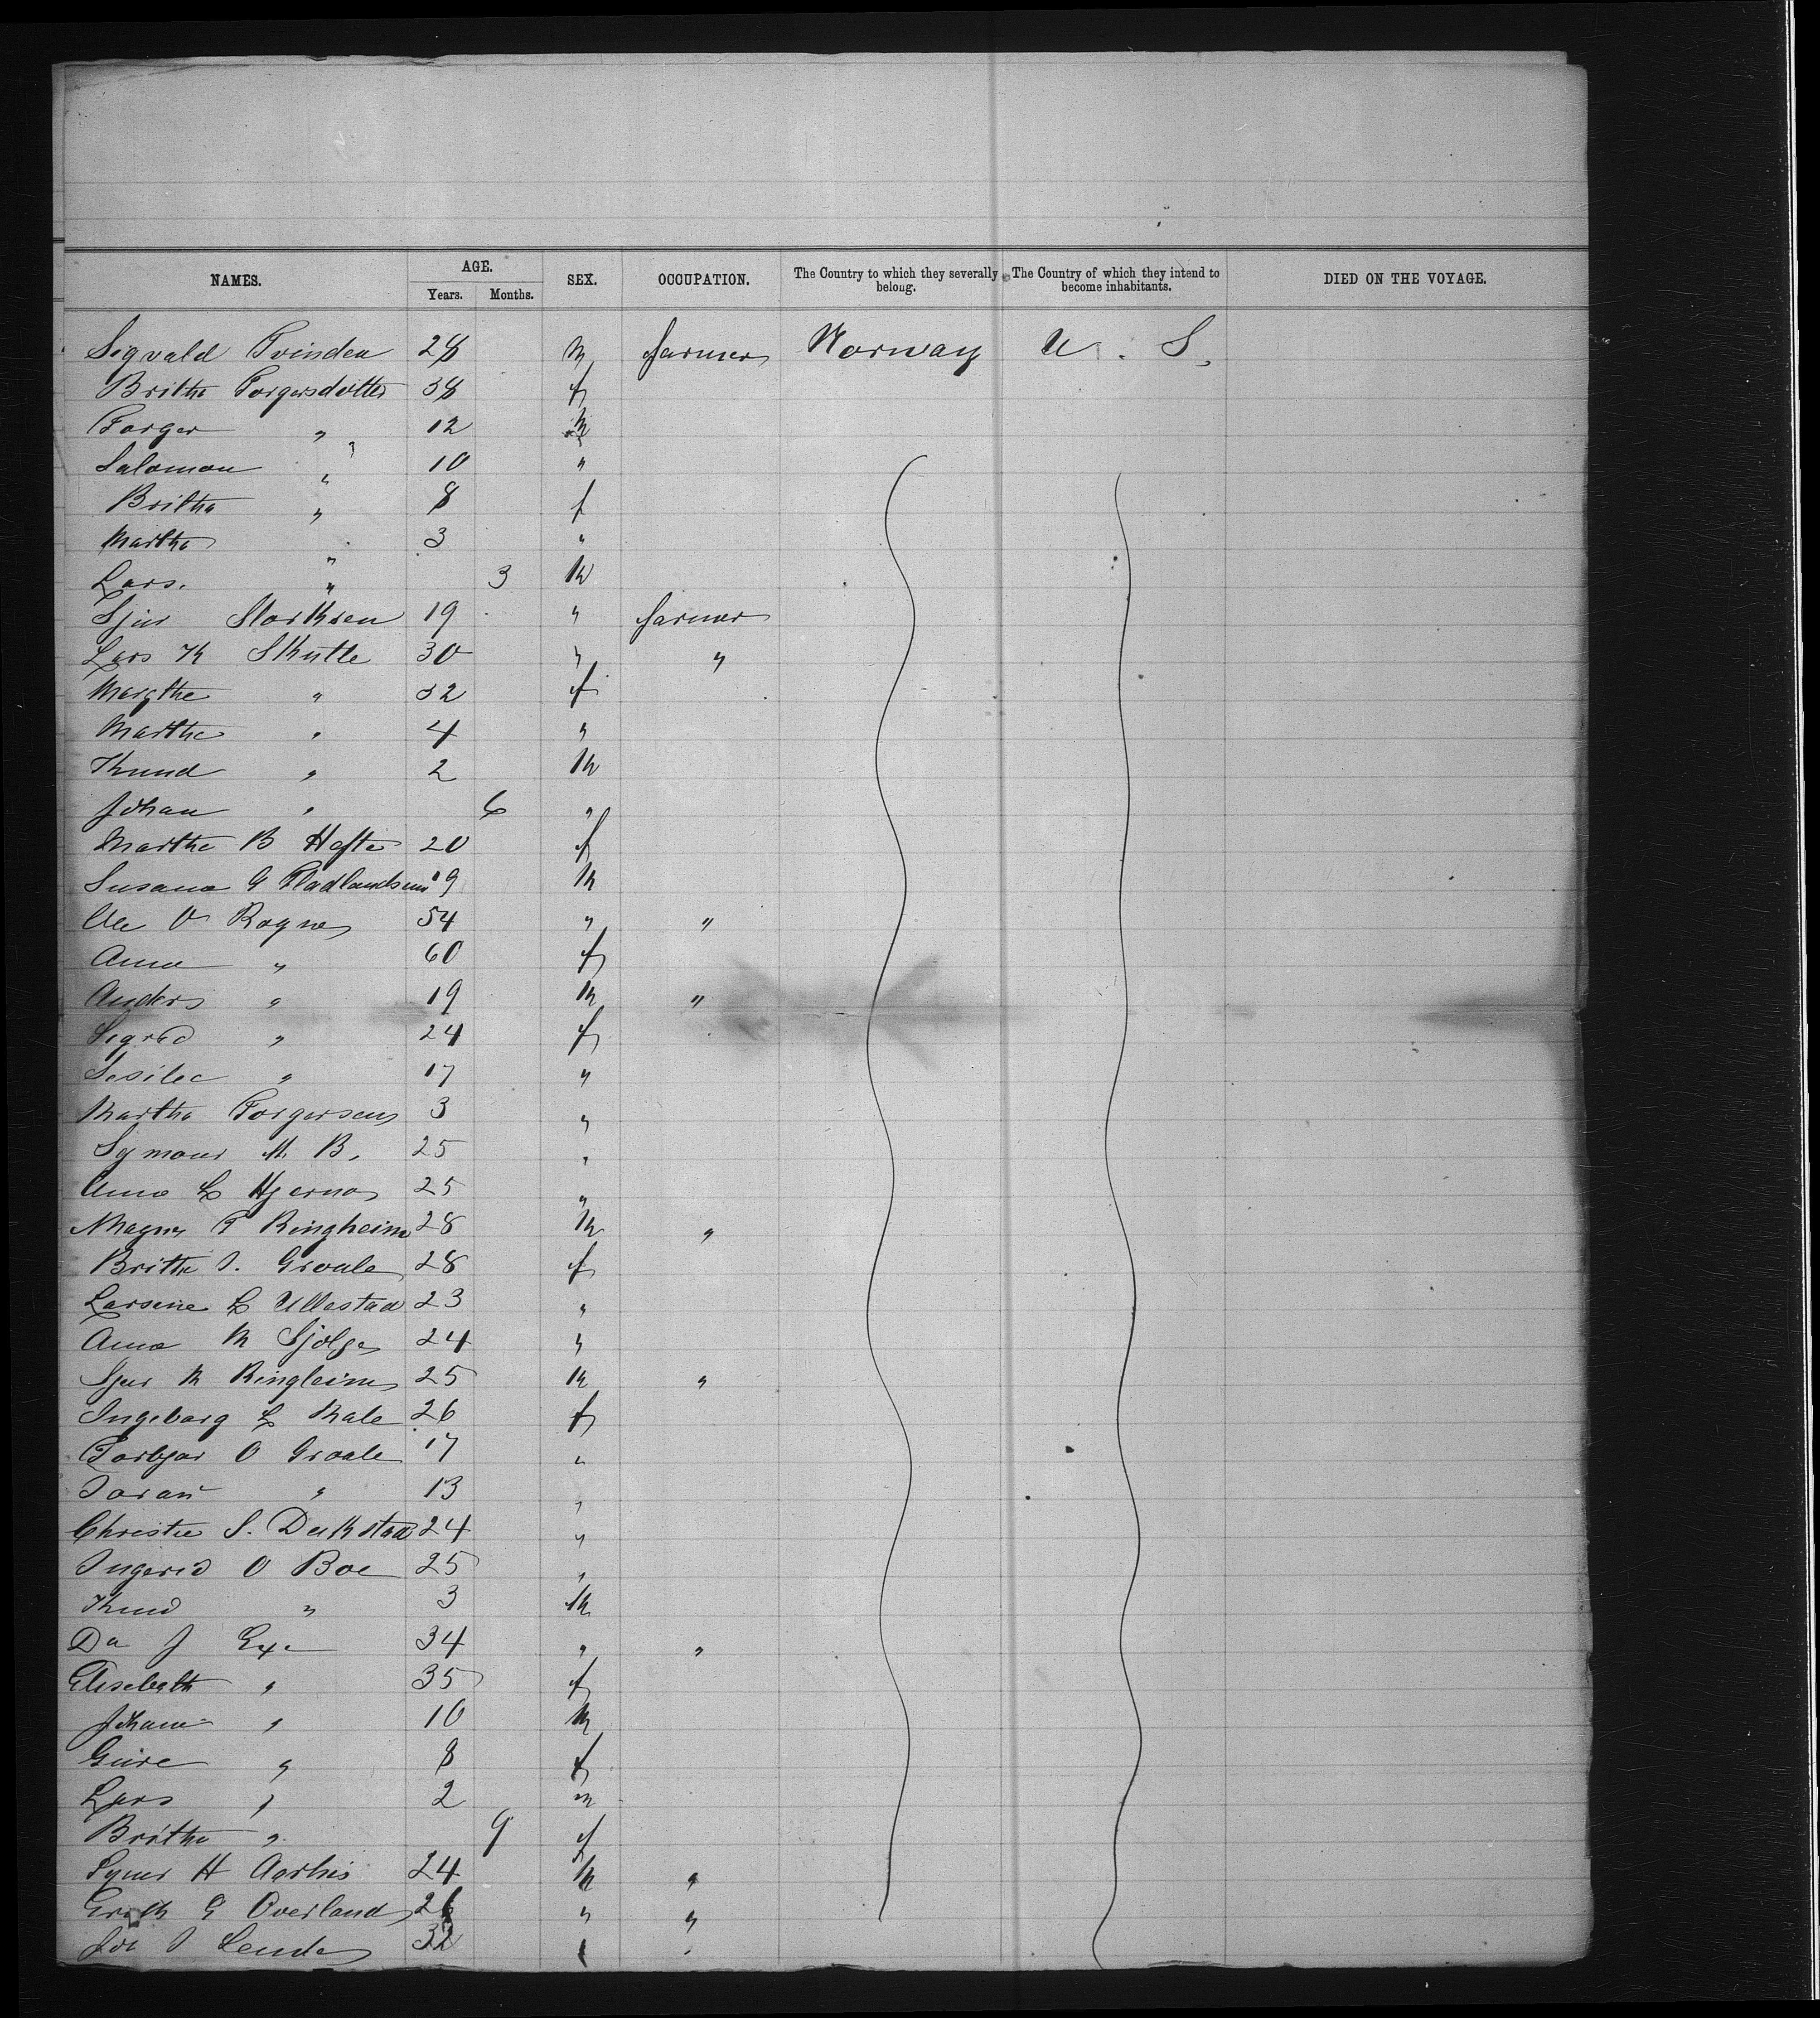 NAMES. AGE. SEX. OCCUPATION. The Country to which they severally belong. The Country of which they intend to become inhabitants. DIED ON THE VOYAGE.
Years. Months.
Sigvald Tvinden 28 m farmer Norway U. S.
Britha Torgersdotter 38 f
Torger " 12 m
Salomon " 10 "
Britha " 8 f
Martha " 3 "
Lars. " 3 m
Sjur Slorksen 19 " farmer
Lars K Skutle 30 " "
Margthe " 32 f
Marthe " 4 "
Knud " 2 m
Johan " 6 "
Marthe B Hefte 20 f
Susana G 19 m
Ole O Rogne 54 " "
Anna " 60 f
Anders " 19 m "
Sigrid " 24 f
Sesilee " 17 "
Martha Torgersen 3 "
Symour M. B. 25 "
Anna L Hjerno 25 "
Magne T Ringheim 28 m "
Britha I. Groale 28 f
Larsine L Ullestad 23 "
Anna M Sjolge 24 "
Sjur M Ringleim 25 m "
Ingeborg L Male 26 f
Torbjor O Groale 17 "
Toran " 13 "
Christie S. Dukstad 24 "
Ingerid O Boe 25 "
Knud " 3 m
J 34 " "
Elisebeth " 35 f
Johan " 10 m
Guire " 8 f
Lars " 2 m
Britha " 9 f
H Aarhus 24 m "
G Overland 26 " "
I Lende 32 " "